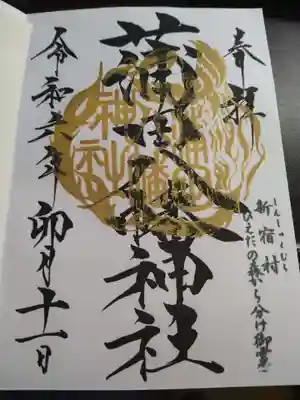 奉拝
新宿村
しんしゅくむら
ひえだの森から分け御霊
蒲田八幡神社
令和六年卯月十一日